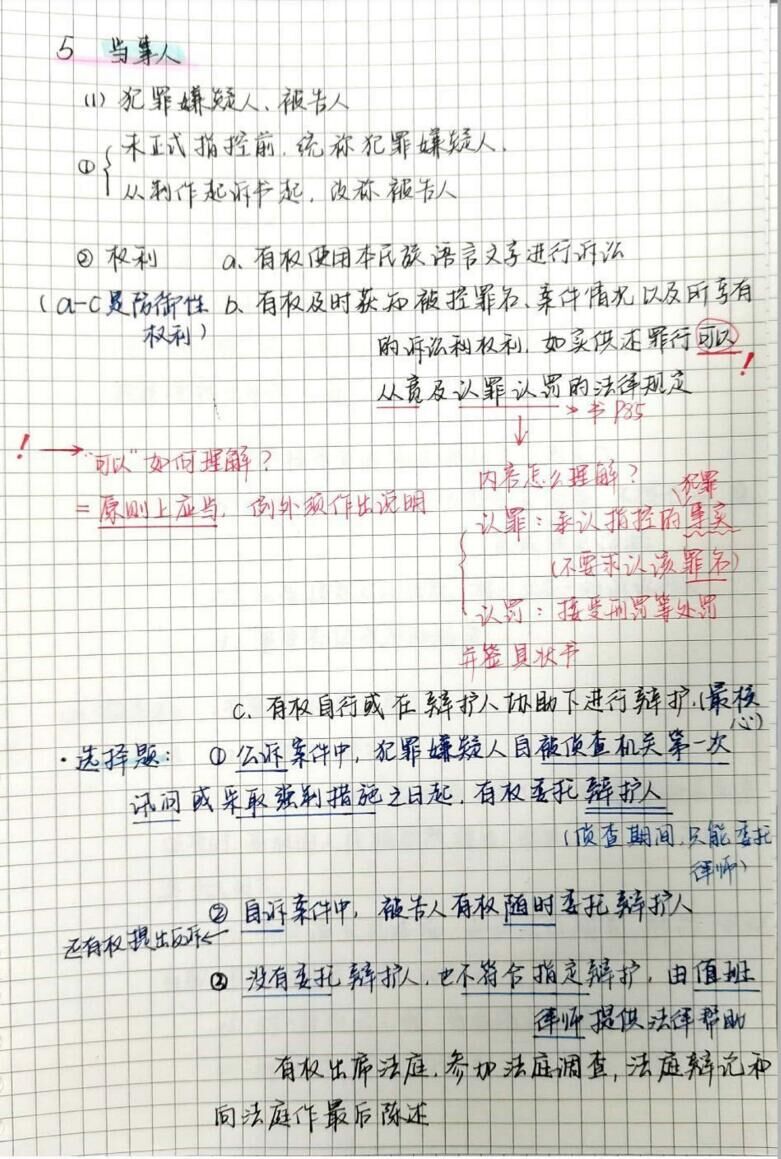 5 当事人
(1) 犯罪嫌疑人、被告人
① { 未正式指控前，统称犯罪嫌疑人.
从制作起诉书起，改称被告人
② 权利 a. 有权使用本民族语言文字进行诉讼
(a-c是防御性权利) b. 有权及时获知被控罪名、案件情况以及所享有
的诉讼利权利，如实供述罪行可以!
从宽及认罪认罚的法律规定
→书P85
! → "可以"如何理解？
= 原则上应当，例外须作出说明
↓
内容怎么理解？
认罪：承认指控的犯罪事实
(不要求认该罪名)
认罚：接受刑罚等处罚
并签具状书
c. 有权自行或在辩护人协助下进行辩护.(最核心)
·选择题： ① 公诉案件中，犯罪嫌疑人自被侦查机关第一次
讯问或采取强制措施之日起，有权委托辩护人
(侦查期间，只能委托
律师)
② 自诉案件中，被告人有权随时委托辩护人
还有权提出反诉←
③ 没有委托辩护人，也不符合指定辩护，由值班
律师提供法律帮助
有权出席法庭，参加法庭调查，法庭辩论和
向法庭作最后陈述